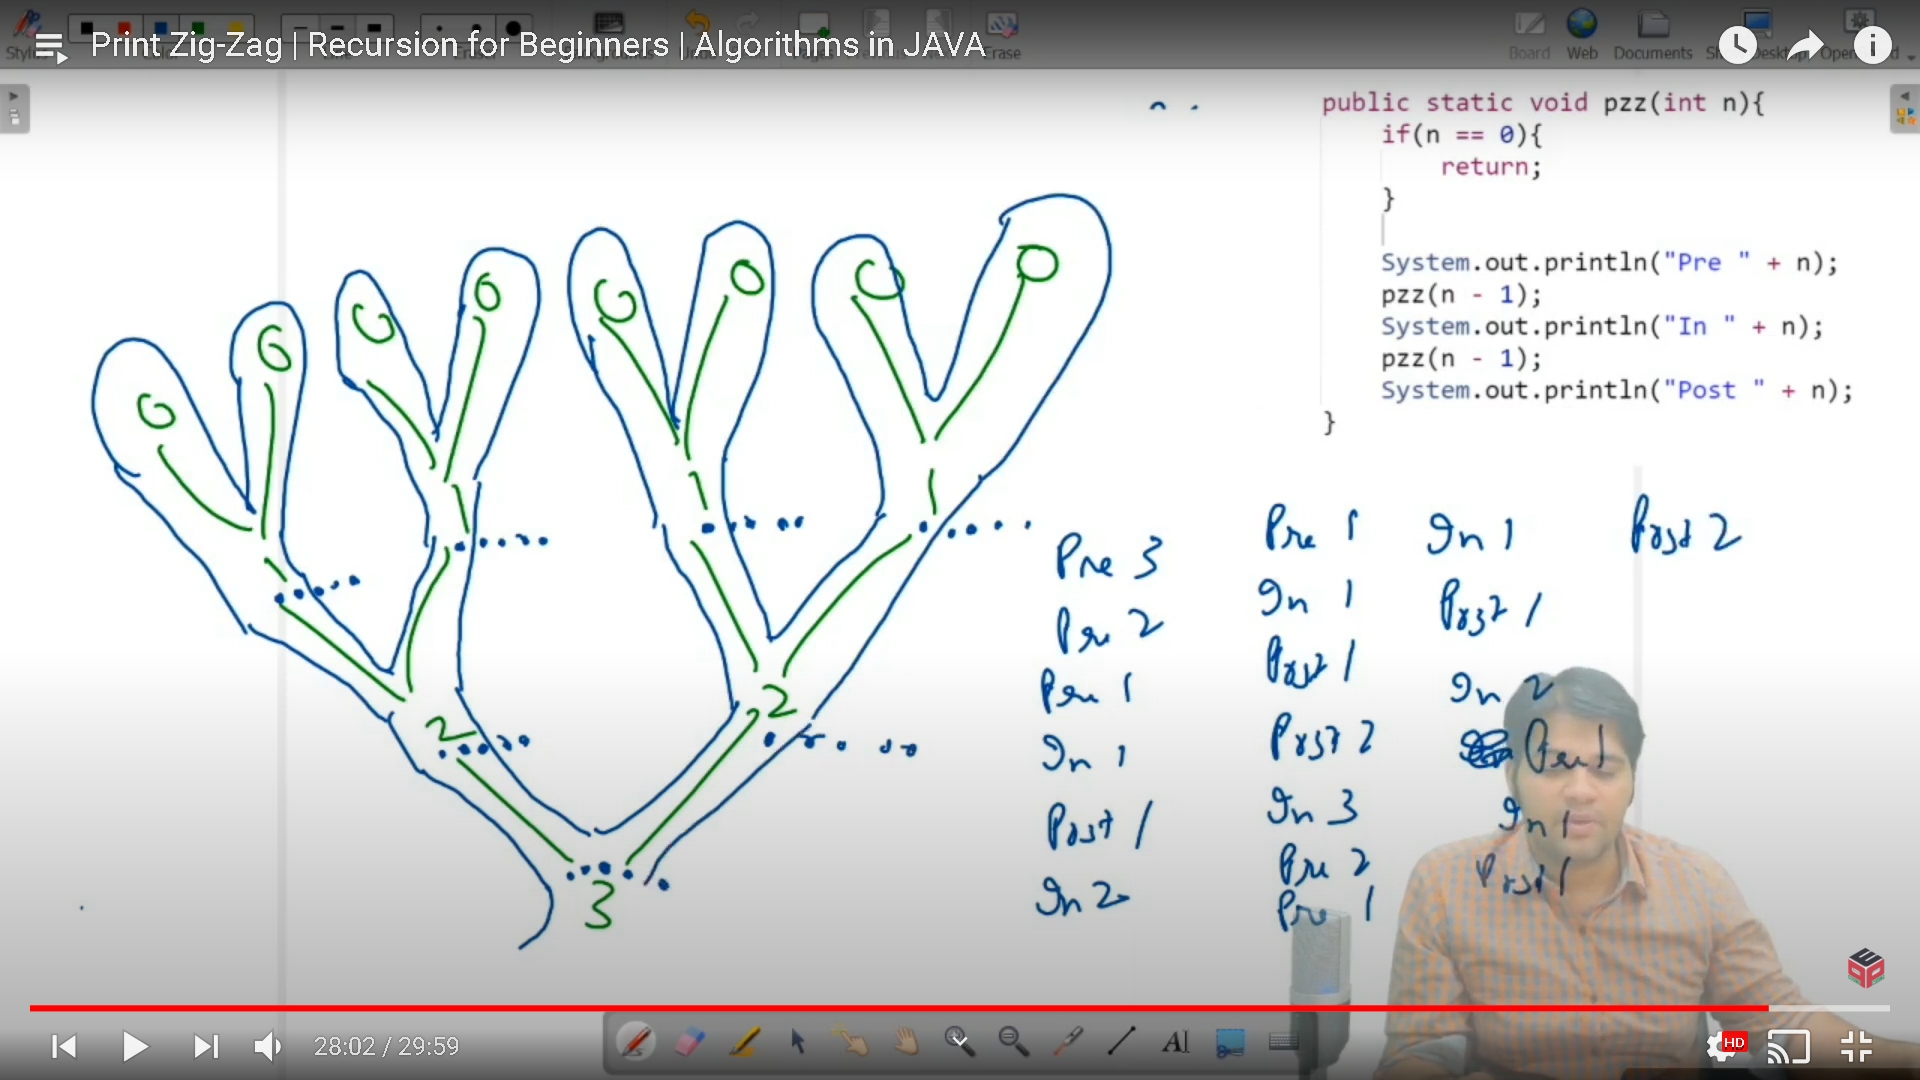 Print Zig-Zag | Recursion for Beginners | Algorithms in JAVA
Board Web Documents
Erase
public static void pzz(int n){
if(n == 0){
return;
}
System.out.println("Pre " + n);
pzz(n - 1);
System.out.println("In " + n);
pzz(n - 1);
System.out.println("Post " + n);
}
0 0 0 0 0 0 0 0
1 1 1 1
2 2
3
Pre 3
Pre 2
Pre 1
In 1
Post 1
In 2
Pre 1
In 1
Post 1
Post 2
In 3
Pre 2
Pre 1
In 1
Post 1
In 2
Pre 1
In 1
Post 1
Post 2
28:02 / 29:59
AI
HD